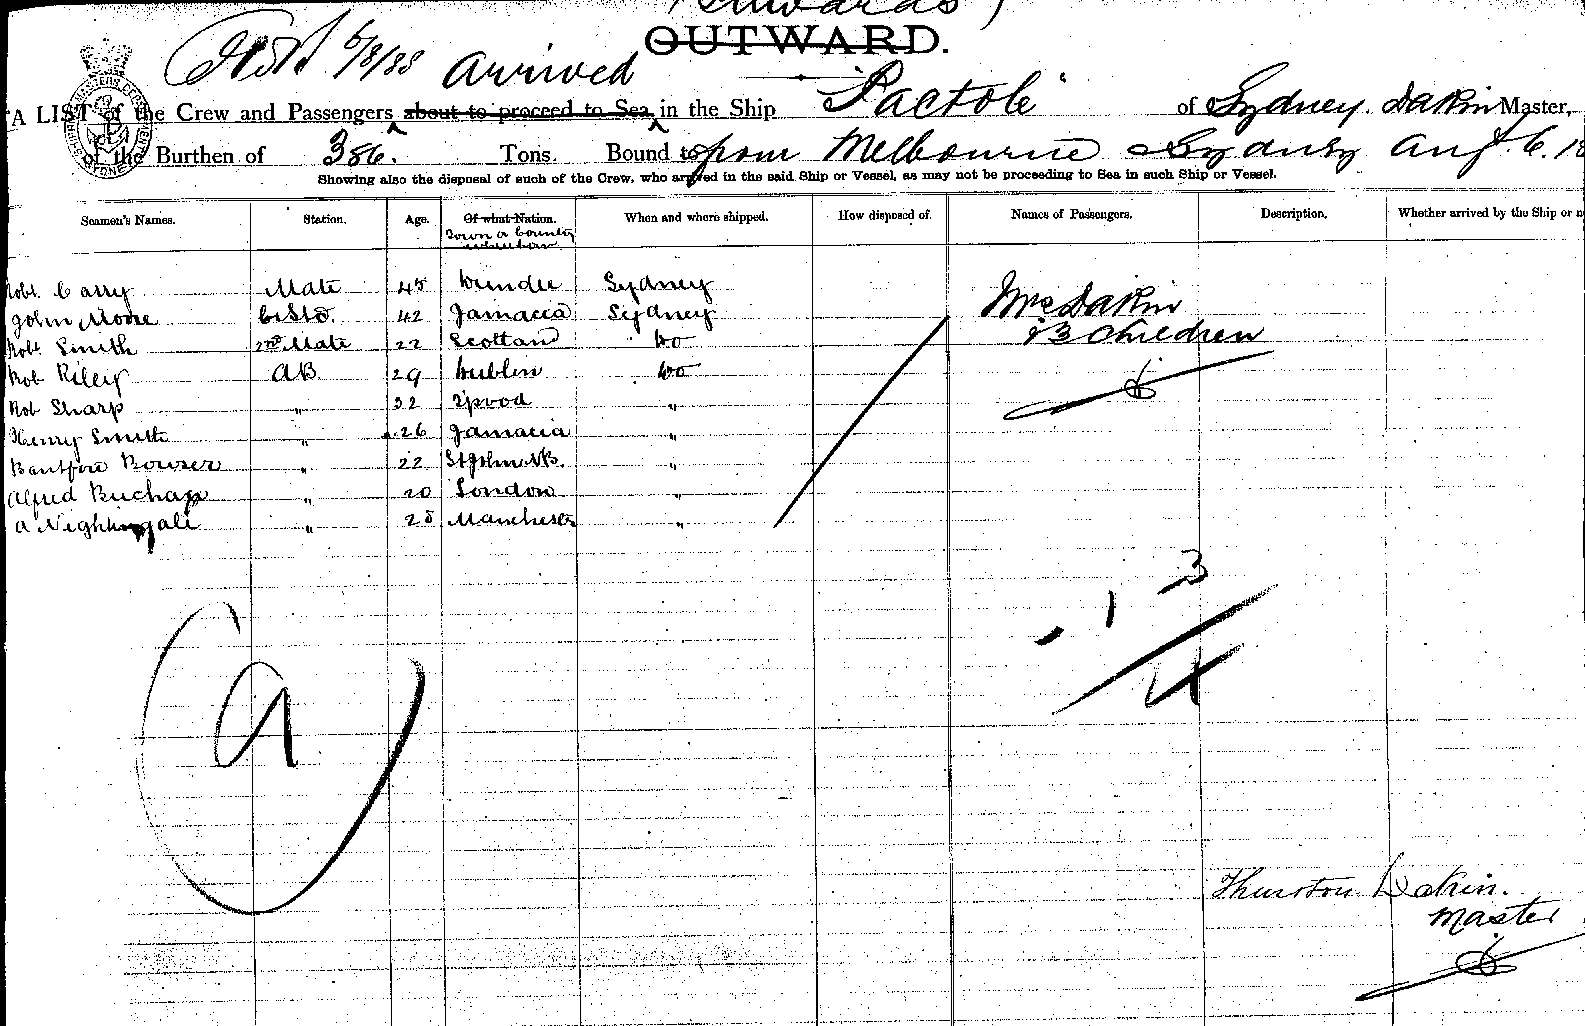 (Edwards)
OUTWARD.
6/8/88 arrived
A LIST of the Crew and Passengers about to proceed to Sea in the Ship "Pactole" of Sydney. Dakin Master,
of the Burthen of 386. Tons. Bound to from Melbourne Sydney Augt. 6. 18
Showing also the disposal of such of the Crew, who arrived in the said Ship or Vessel, as may not be proceeding to Sea in such Ship or Vessel.
Seamen's Names. Station. Age. Of what Nation. When and where shipped. How disposed of. Names of Passengers. Description. Whether arrived by the Ship or n
Town or Country
where born
Robt. Carry Mate 45 Dundee Sydney Mrs Dakin
John Moore C & Std. 42 Jamacia Sydney & 3 Children
Robt. Smith 2nd Mate 22 Scotland Do
Rob Riley AB 29 Dublin Do
Rob Sharp " 32 L'pool "
Henry Smith " 26 Jamacia "
Bowser " 22 St John NB. "
Alfred Buchan " 20 London "
A Nightingale " 25 Manchester "
1 3
4
a
Thurston Dakin.
Master